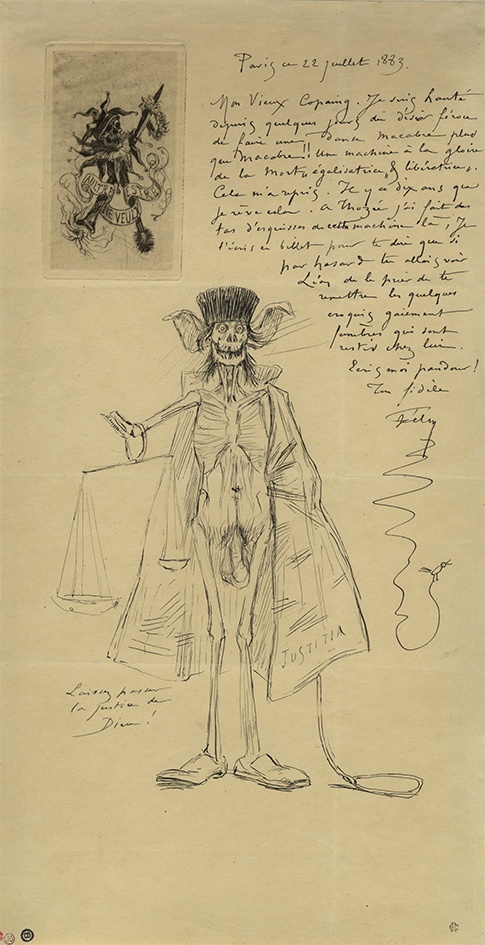 Paris ce 22 juillet 1883.
Mon Vieux Copaing. Je suis hanté
depuis quelques jours du désir féroce
de faire une danse macabre plus
que macabre!! Une machine à la gloire
de la Mort "égalisatrice, & libératrice".
Cela m'a repris. Il y a dix ans que
je rêve cela. A Thozée j'ai fait des
tas d'esquisses de cette machine là, Je
t'écris ce billet pour te dire que si
par hasard tu allais voir
Léon de le prier de te
remettre les quelques
croquis gaiement
funèbres qui sont
restés chez lui.
Ecris moi pandour!
Ton fidèle
Fély
VEULX
JUSTITIA
Laissez passer
la justice de
Dieu!